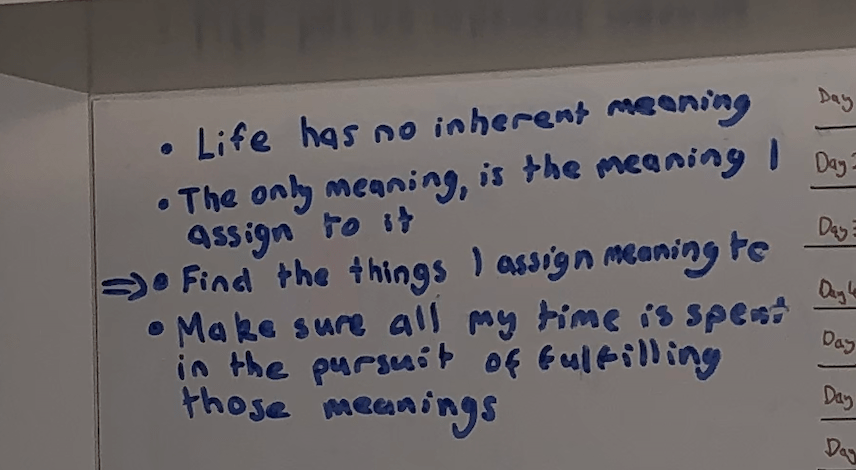 • Life has no inherent meaning
• The only meaning, is the meaning I
assign to it
⇒ • Find the things I assign meaning to
• Make sure all my time is spent
in the pursuit of fulfilling
those meanings
Day
Day 2
Day 3
Day 4
Day
Day
Day